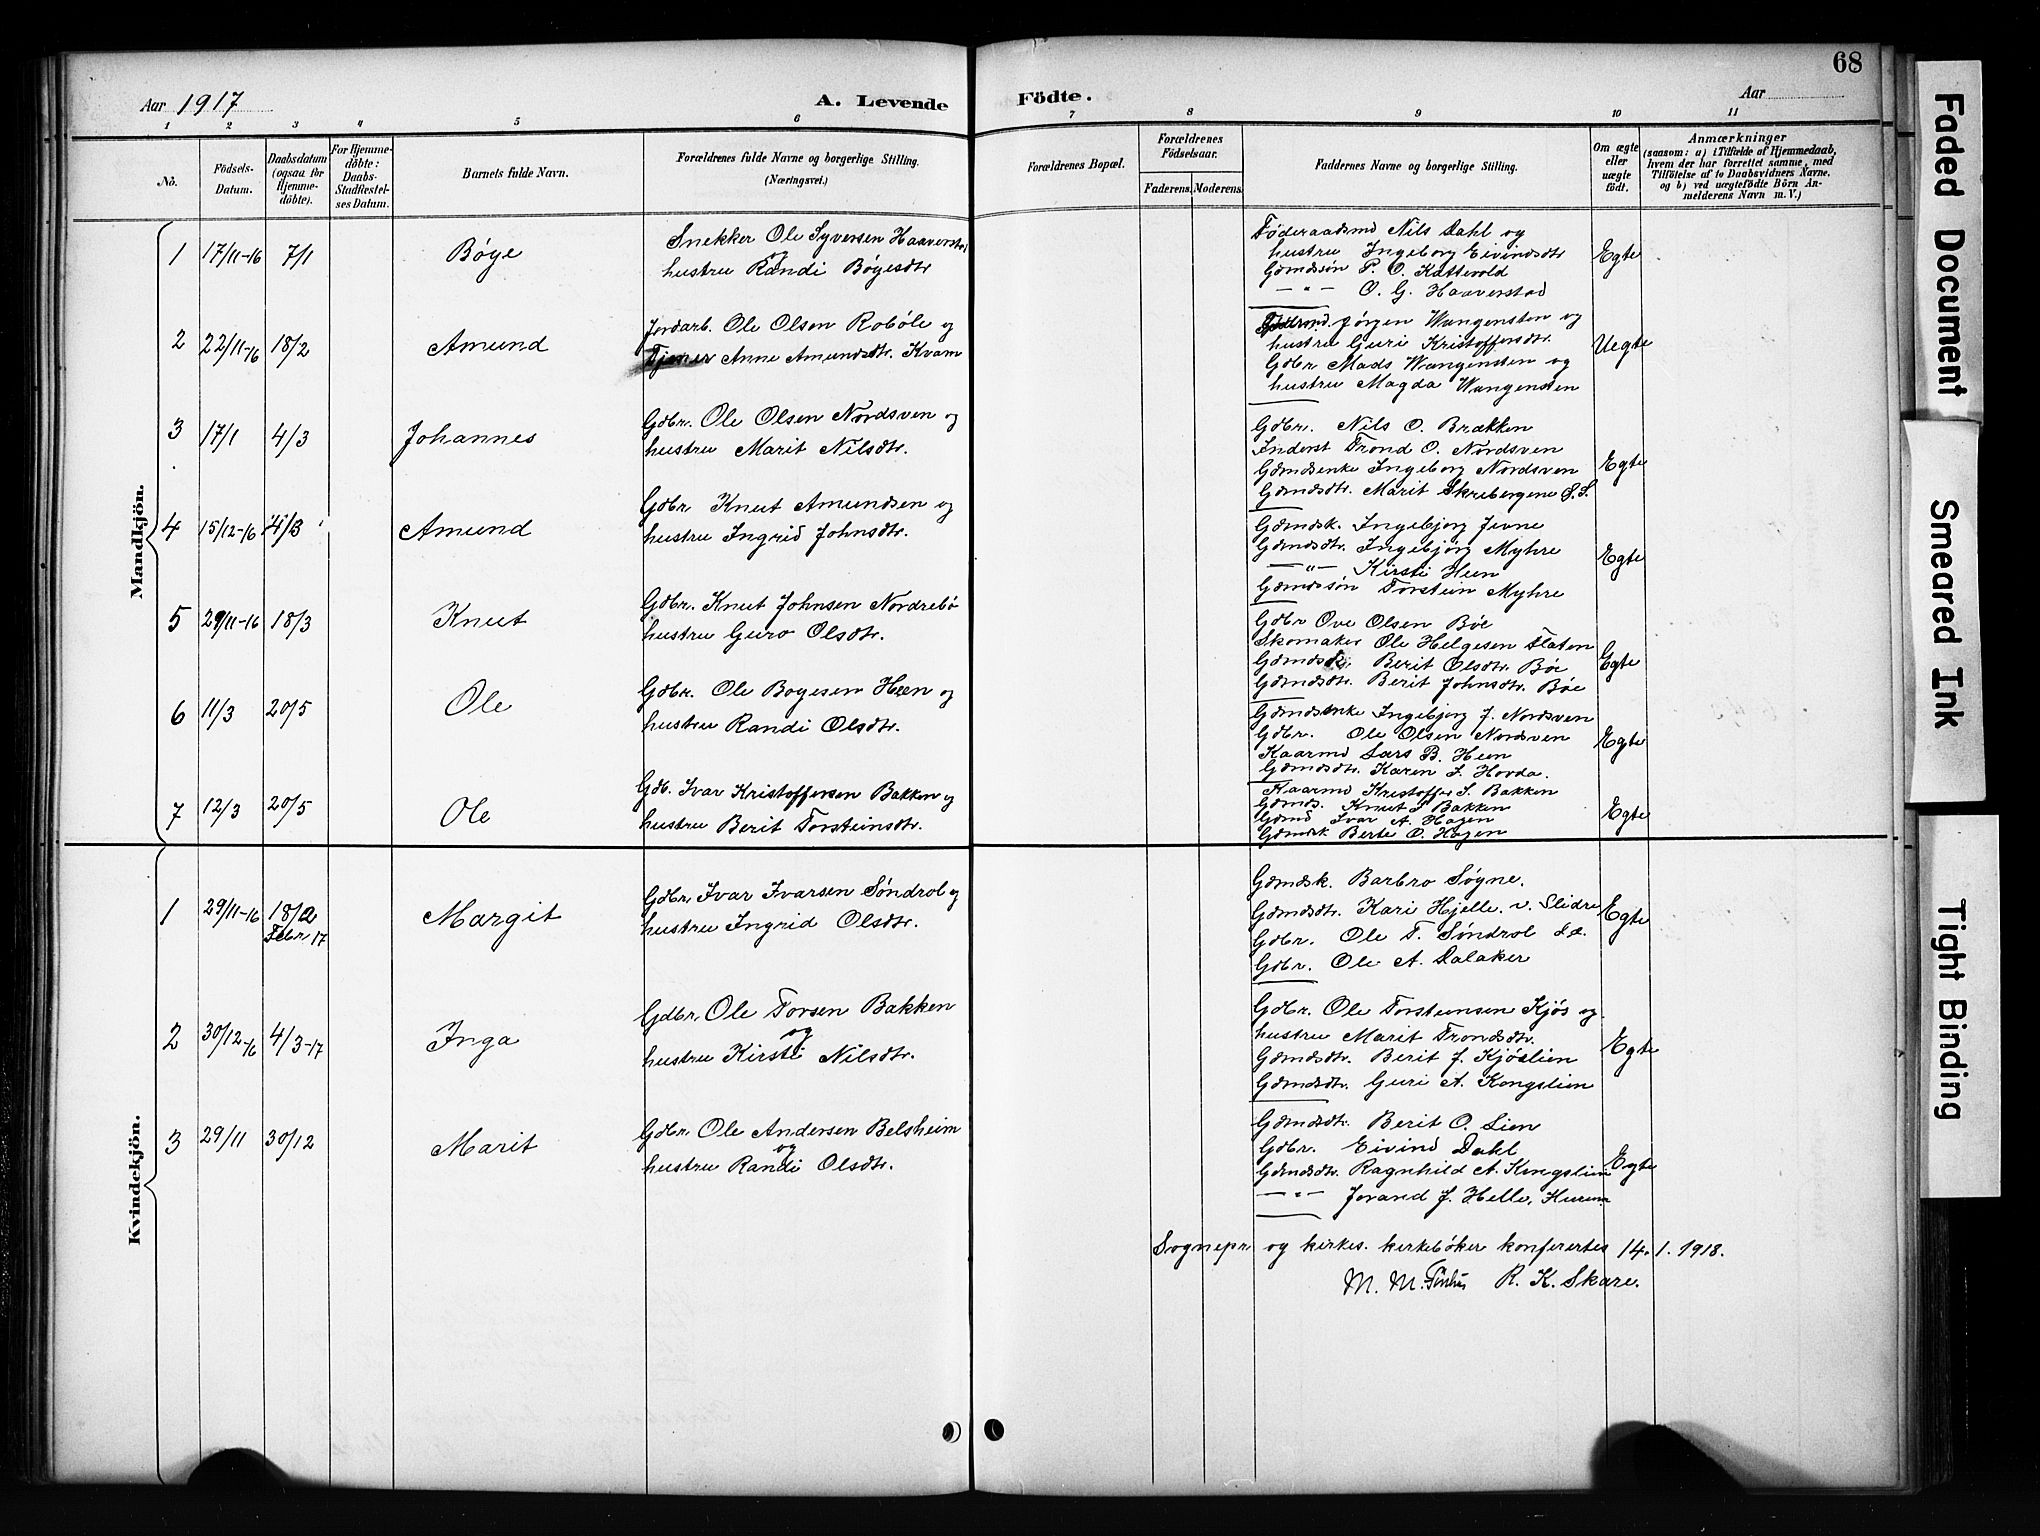 68
Aar 1917
A. Levende
Födte.
Aar
1 2 3 4 5 6 7 8 9 10 11
No.
Födsels-Datum.
Daabsdatum (ogsaa for Hjemme-döbte).
For Hjemme-döbte: Daabs-Stadfestel-ses Datum.
Barnets fulde Navn.
Forældrenes fulde Navne og borgerlige Stilling.
(Næringsvei.)
Forældrenes Bopæl.
Forældrenes Födselsaar.
Faderens. Moderens.
Faddernes Navne og borgerlige Stilling.
Om ægte eller uægte födt.
Anmærkninger
(saasom: a) i Tilfælde af Hjemmedaab,
hvem der har forrettet samme, med
Tilföielse af to Daabsvidners Navne,
og b) ved uægtefödte Börn An-
melderens Navn m. V.)
Mandkjön.
1 17/11-16 7/1 Bøye
Snekker Ole Syversen Haaverst
og
hustru Randi Bøyesdtr
Føderaadsmd Nils Dahl og
hustru Ingeborg Eivindsdtr
Gdmdssøn P. O. Kattevold
— " — O. G. Haaverstad
Egte
2 22/11-16 18/2 Amund
Jordarb. Ole Olsen Robøle og
Tjener Anne Amundsdtr. Kvam
Jørgen Wangensten og
hustru Guri Kristoffersdtr.
Gdbr Mads Wangensten og
hustru Magda Wangensten
Uegte
3 17/1 4/3 Johannes
Gdbr. Ole Olsen Nordsven og
hustru Marit Nilsdtr.
Gdbr. Nils O. Brækken
Inderst Trond O. Nordsven
Gdmdsenke Ingeborg Nordsven
Gdmdsdtr. Marit Skrebergene S.S.
Egte
4 15/12-16 4/3 Amund
Gdbr Knut Amundsen og
hustru Ingrid Johnsdtr.
Gdmdsk. Ingebjørg Jevne
Gdmdsdtr. Ingebjørg Myhre
— " — Kirsti Heen
Gdmdssøn Torstein Myhre
Egte
5 29/11-16 18/3 Knut
Gdbr. Knut Johnsen Nordrebø
hustru Guro Olsdtr.
Gdbr Ove Olsen Bøe
Skomaker Ole Helgesen Flaten
Gdmdsk. Berit Olsdtr. Bøe
Gdmdsdtr. Berit Johnsdtr. Bøe
Egte
6 11/3 20/5 Ole
Gdbr. Ole Bøyesen Heen og
hustru Randi Olsdtr.
Gdmdsenke Ingebjørg J. Nordsven
Gdbr. Ole Olsen Nordsven
Kaarmd Lars B. Heen
Gdmdsdtr. Karen J. Hovda.
Egte
7 12/3 20/5 Ole
Gdb. Ivar Kristoffersen Bakken og
hustru Berit Torsteinsdtr.
Kaarmd Kristoffer I. Bakken
Gdmds. Knut I Bakken
Gdmd Ivar A. Hagen
Gdmdsk Berte O. Hagen
Egte
Kvindekjön.
1 29/11-16 18/2 Febr. 17 Margit
Gdbr. Ivar Ivarsen Søndrol og
hustru Ingrid Olsdtr.
Gdmdsk. Barbro Søgne.
Gdmdsdtr. Kari Hjelle. v. Slidre
Gdbr. Ole T. Søndrol
Gdbr. Ole A. Dalaker
Egte
2 30/12-16 4/3-17 Inga
Gdbr, Ole Torsen Bakken
og
hustru Kirsti Nilsdtr.
Gdbr. Ole Torsteinsen Kjøs og
hustru Marit Trondsdtr.
Gdmdsdtr. Berit J. Kjøslien
Gdmdsdtr. Guri A. Kongslien
Egte
3 29/11 30/12 Marit
Gdbr. Ole Andersen Belsheim
og
hustru Randi Olsdtr.
Gdmdsdtr. Berit O. Lien
Gdbr. Eivind Dahl
Gdmdsdtr. Ragnhild A. Kongslien
— " — Jorand J. Helle, Hurum
Egte
Sognepr. og kirkes. kirkebøker konferertes 14. 1. 1918.
M. M. R. K. Skare.
Faded Document
Smeared Ink
Tight Binding